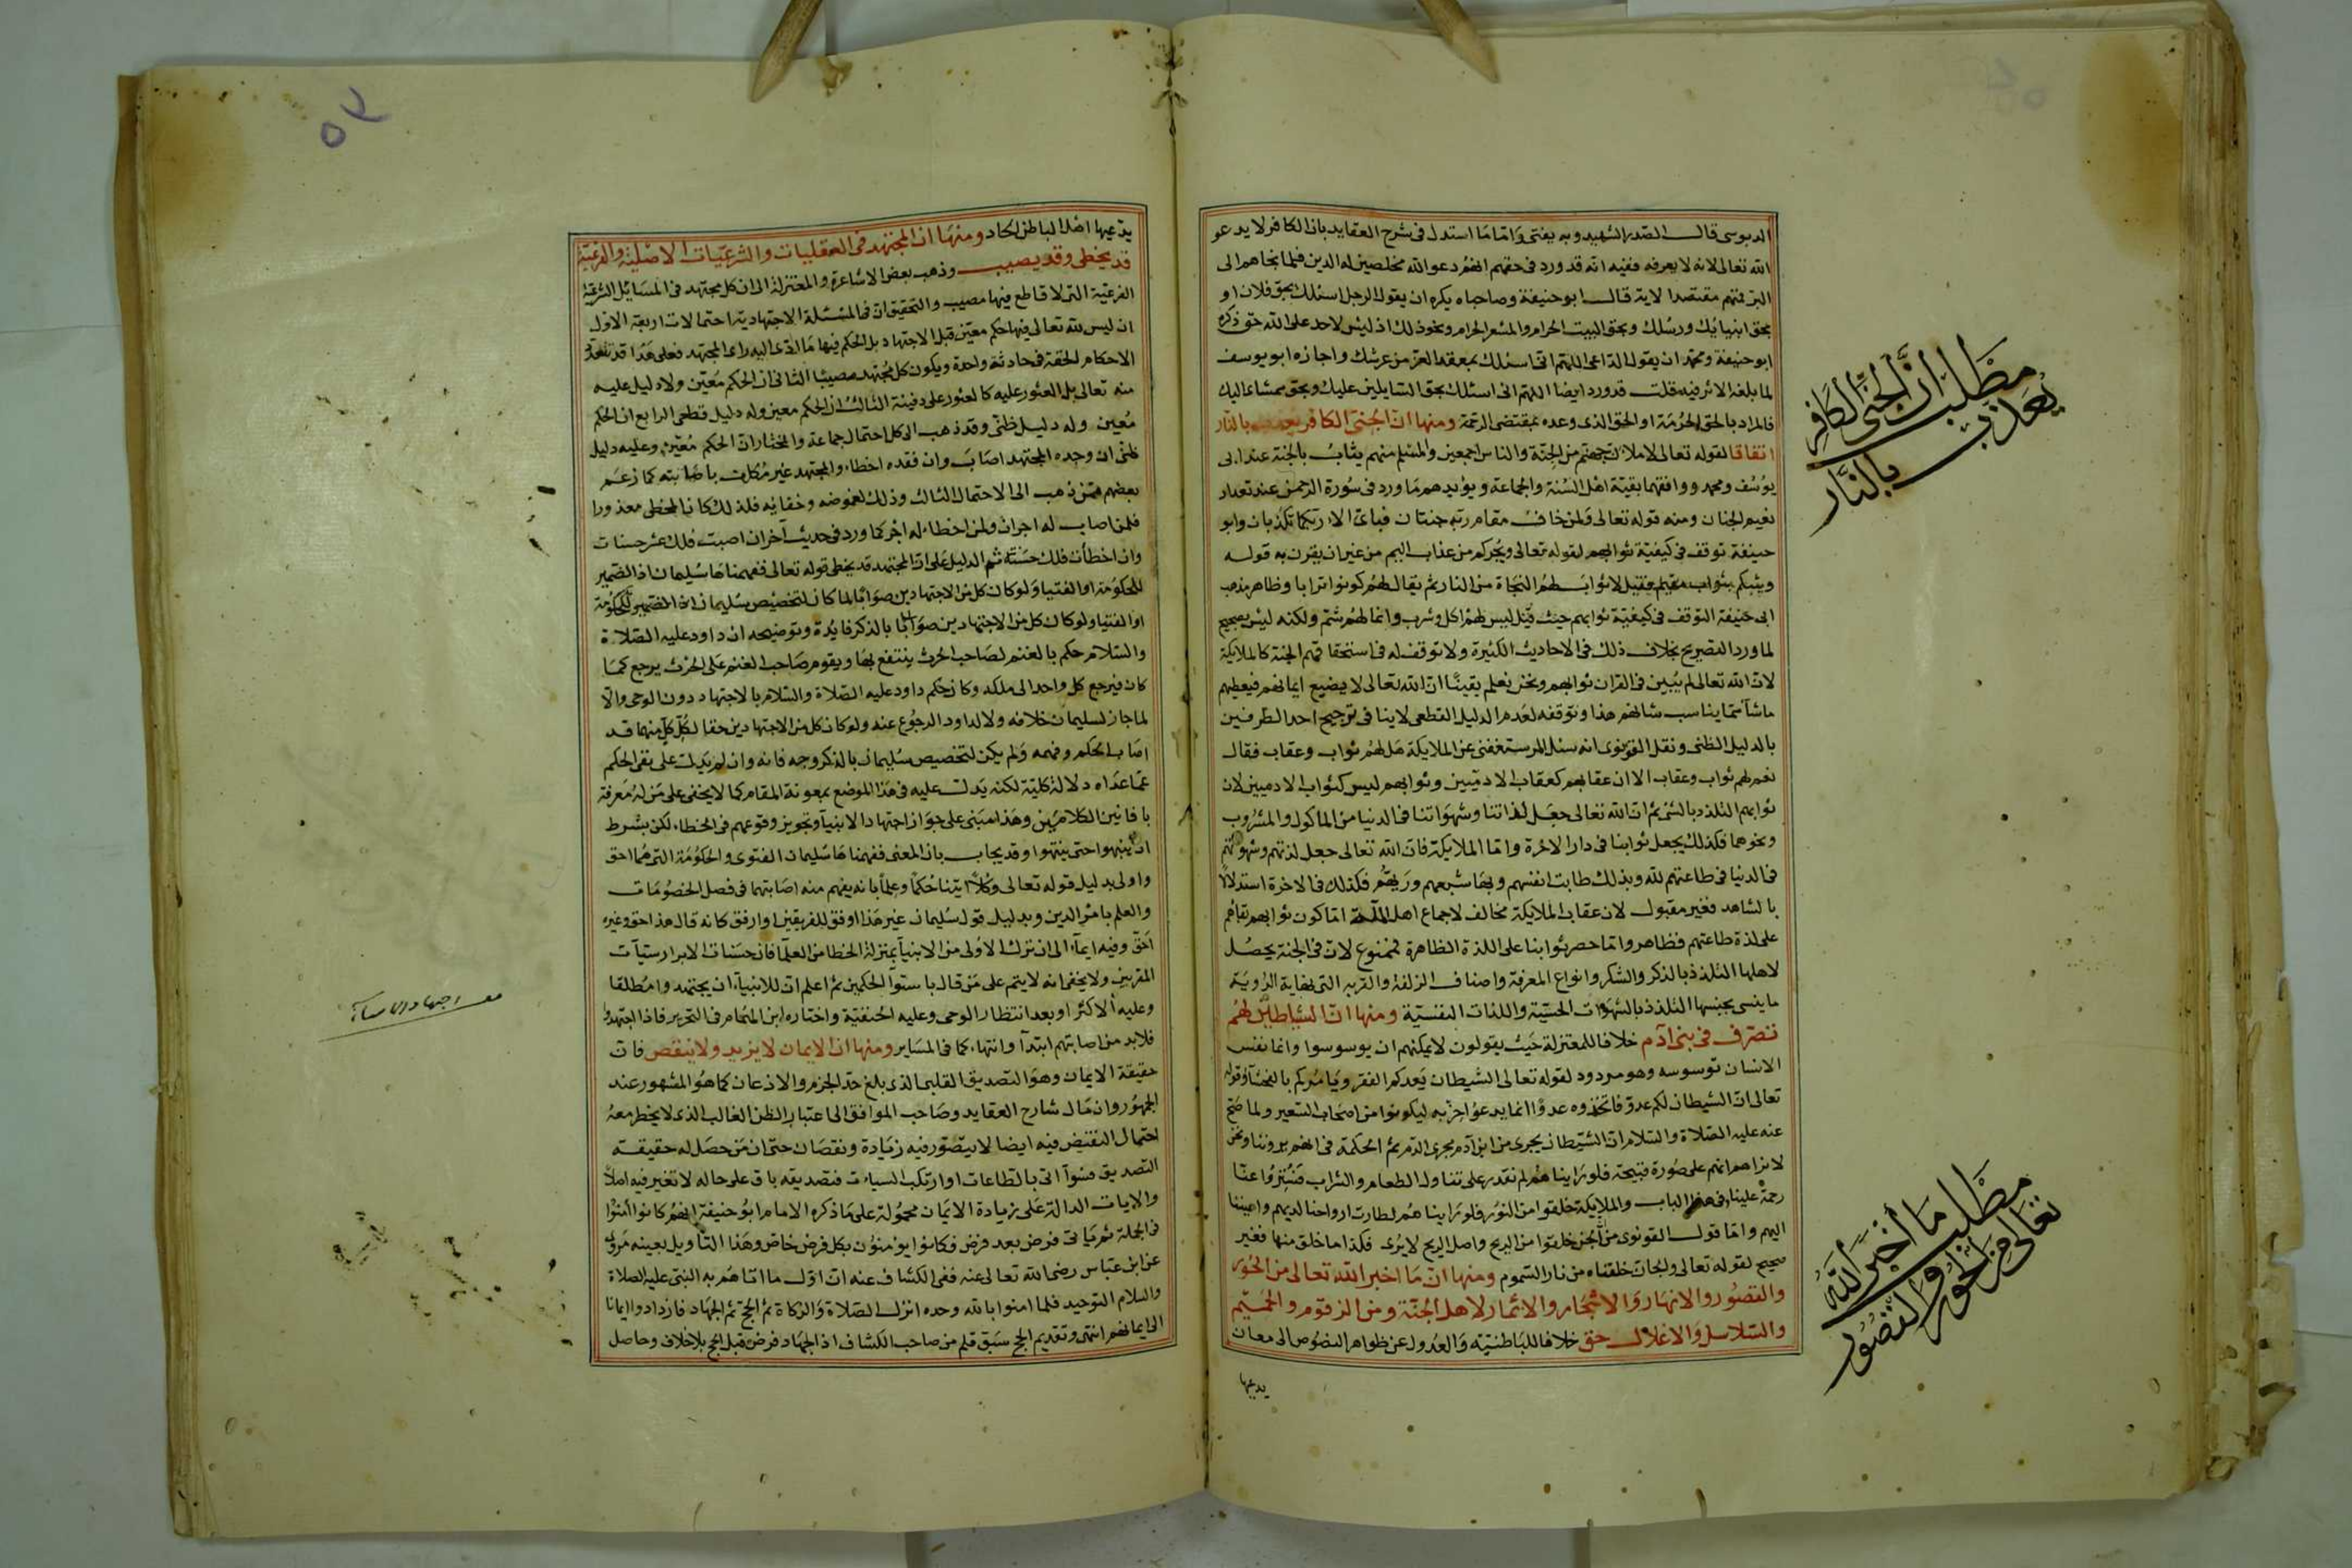 الدبوسى قال الصدر الشهيد وبه يفتى واما ما استدل فى شرح العقايد بان الكافر لا يدعو
الله تعالى لانه لا يعرفه ففيه انه قد ورد فى حقهم انهم دعوا الله مخلصين له الدين فلما نجاهم الى
البر فمنهم مقتصد الاية قال ابو حنيفة وصاحباه يكره ان يقول الرجل اسئلك بحق فلان او
بحق انبيائك ورسلك وبحق البيت الحرام والمشعر الحرام ونحو ذلك اذ ليس لاحد على الله حق وكره
ابو حنيفة ومحمد ان يقول الداعى اللهم انى اسئلك بمعقد العز من عرشك واجازه ابو يوسف
لما بلغه الاثر فيه قلت قد ورد ايضا اللهم انى اسئلك بحق السايلين عليك وبحق ممشاى اليك
فالمراد بالحق الحرمة او الحق الذى وعده بمقتضى الرحمة ومنها ان الجنى الكافر يعذب بالنار
اتفاقا لقوله تعالى لاملان جهنم من الجنة والناس اجمعين والمسلم منهم يثاب بالجنة عند ابى
يوسف ومحمد ووافقهما بقية اهل السنة والجماعة ويؤيدهم ما ورد فى سورة الرحمن عند تعداد
نعيم الجنان ومنه قوله تعالى ولمن خاف مقام ربه جنتان فباى الاء ربكما تكذبان وابو
حنيفة توقف فى كيفية ثوابهم لقوله تعالى ويجركم من عذاب اليم من غير ان يقرن به قوله
ويثبكم بثواب مقيم فقيل لا ثواب لهم الا النجاة من النار ثم يقال لهم كونوا ترابا وظاهر مذهب
ابى حنيفة التوقف فى كيفية ثوابهم حيث قيل ليس لهم اكل وشرب وانما لهم شم ولكنه ليس بصحيح
لما ورد التصريح بخلاف ذلك فى الاحاديث الكثيرة ولا توقف له فى استحقاقهم الجنة كالملايكة
لان الله تعالى لم يبين فى القران ثوابهم ونحن نعلم يقينا ان الله تعالى لا يضيع ايمانهم فيعطيهم
ما شآ مما يناسب شانهم هذا وتوقفه لعدم الدليل القطعى لا ينافى ترجيح احد الطرفين
بالدليل الظنى ونقل القونوى انه سئل الرستغفنى عن الملايكة هل لهم ثواب وعقاب فقال
نعم لهم ثواب وعقاب الا ان عقابهم كعقاب الادميين وثوابهم ليس كثواب الادميين لان
ثوابهم التلذذ بالشئ ثم ان الله تعالى جعل لذاتنا وشهواتنا فى الدنيا من الماكول والمشروب
ونحوهما فكذلك يجعل ثوابنا فى دار الاخرة واما الملايكة فان الله تعالى جعل لذتهم وشهوتهم
فى الدنيا فى طاعتهم لله وبذلك طابت انفسهم وبها شبعهم وريهم فكذلك فى الاخرة استدلالا
بالشاهد فغير مقبول لان عقاب الملايكة مخالف لاجماع اهل الملة اما كون ثوابهم بقاهم
على لذة طاعتهم فظاهر واما حصر ثوابنا على اللذة الظاهرة فممنوع لان فى الجنة يحصل
لاهلها التلذذ بالذكر والشكر وانواع المعرفة واصناف الزلفة والقربه التى نهاية الروية
ما ينسى بجنبها التلذذ بالشهوات الحسية واللذات النفسية ومنها ان الشياطين لهم
تصرف فى بنى آدم خلافا للمعتزلة حيث يقولون لا يمكنهم ان يوسوسوا وانما نفس
الانسان توسوسه وهو مردود لقوله تعالى الشيطان يعدكم الفقر ويامركم بالفحشآ وقوله
تعالى ان الشيطان لكم عدو فاتخذوه عدوا انما يدعو حزبه ليكونوا من اصحاب السعير ولما صح
عنه عليه الصلاة والسلام ان الشيطان يجرى من ابن آدم مجرى الدم ثم الحكمة فى انهم يروننا ونحن
لا نراهم انهم على صورة قبيحة فلو راينا هم لم نقدر على تناول الطعام والشراب فستروا عنا
رحمة علينا فى هذا الباب والملايكة خلقوا من النور فلو راينا هم لطارت ارواحنا لديهم واعيننا
اليهم واما قول القونوى من ان الجن خلقوا من الريح واصل الريح لا يرى فكذا ما خلق منها فغير
صحيح لقوله تعالى والجان خلقناه من نار السموم ومنها ان ما اخبر الله تعالى من الحور
والقصور والانهار والاشجار والاثمار لاهل الجنة ومن الزقوم والحميم
والسلاسل والاغلال حق خلافا للباطنية والعدول عن ظواهر النصوص الى معان
يدعيها
مطلب ان الجنى الكافر
يعذب بالنار
مطلب ما أخبر الله
تعالى من الحور والقصور
٥٣
يدعيها اهل الباطن الحاد ومنها ان المجتهد فى العقليات والشرعيات الاصلية والفرعية
قد يخطى وقد يصيب وذهب بعض الاشاعرة والمعتزلة الى ان كل مجتهد فى المسائل الشرعية
الفرعية التى لا قاطع فيها مصيب والتحقيق ان فى المسئلة الاجتهادية احتمالات اربعة الاول
ان ليس لله تعالى فيها حكم معين قبل الاجتهاد بل الحكم فيها ما ادى اليه راى المجتهد فعلى هذا قد تتعدد
الاحكام الحقة فى حادثة واحدة ويكون كل مجتهد مصيبا الثانى ان الحكم معين ولا دليل عليه
منه تعالى بل العثور عليه كالعثور على دفينة الثالث ان الحكم معين وله دليل قطعى الرابع ان الحكم
معين وله دليل ظنى وقد ذهب الى كل احتمال جماعة والمختار ان الحكم معين وعليه دليل
ظنى ان وجده المجتهد اصاب وان فقده اخطاء والمجتهد غير مكلف باصابته كما زعم
بعضهم ممن ذهب الى الاحتمال الثالث وذلك لغموضه وخفائه فلذلك كان المخطى معذورا
فلمن اصاب له اجران ولمن اخطاء له اجر كما ورد فى حديث آخر ان اصبت فلك عشر حسنات
وان اخطأت فلك حسنة ثم الدليل على ان المجتهد قد يخطى قوله تعالى ففهمناها سليمان اذ الضمير
للحكومة او الفتيا ولو كان كل من الاجتهادين صوابا لما كان لتخصيص سليمان
او الفتيا ولو كان كل من الاجتهادين صوابا بالذكر فايدة وتوضيحه ان داود عليه الصلاة
والسلام حكم بالغنم لصاحب الحرث ينتفع بها ويقوم صاحب الغنم على الحرث يرجع كما
كان فيرجع كل واحد الى ملكه وكان حكم داود عليه الصلاة والسلام بالاجتهاد دون الوحى والا
لما جاز لسليمان خلافه ولا لداود الرجوع عنه ولو كان كل من الاجتهادين حقا لكان كل منهما قد
اصاب الحكم وفهمه ولم يكن لتخصيص سليمان بالذكر وجه فانه وان لم يدل على نفى الحكم
عما عداه دلالة كلية لكنه يدل عليه فى هذا الموضع بمعونة المقام كما لا يخفى على من له معرفة
بافانين الكلام وهذا مبنى على جواز اجتهاد الانبيآ وتجويز وقوعهم فى الخطاء لكن بشرط
ان ينبهوا حتى ينتهوا وقد يجاب بان المعنى ففهمناها سليمان الفتوى والحكومة التى هما احق
واولى بدليل قوله تعالى وكلا اتينا حكما وعلما بانه يفهم منه اصابتهما فى فصل الخصومات
والعلم بامر الدين وبدليل قول سليمان غير هذا اوفق للفريقين او ارفق كانه قال هذا حق وغيره
احق وفيه ايمآء الى ان ترك الاولى من الانبيآ بمنزلة الخطا من العلمآ فان حسنات الابرار سيآت
المقربين ولا يخفى انه لا يتم على من قال باستوآ الحكمين ثم اعلم ان للانبيآء ان يجتهدوا مطلقا
وعليه الاكثر او بعد انتظار الوحى وعليه الحنفية واختاره ابن الهمام فى التحرير فاذا اجتهدوا
فلابد من اصابتهم ابتدآ وانتهاء كما فى المساير ومنها ان الايمان لا يزيد ولا ينقص فان
حقيقة الايمان وهو التصديق القلبى الذى بلغ حد الجزم والاذعان كما هو المشهور عند
الجمهور وان مال شارح العقايد وصاحب المواقف الى اعتبار الظن الغالب الذى لا يخطر معه
احتمال النقيض فيه ايضا لا يتصور فيه زيادة ونقصان حتى ان من حصل له حقيقة
التصديق فسوآ اتى بالطاعات او ارتكب السيات فتصديقه باق على حاله لا تغير فيه اصلا
والايات الدالة على زيادة الايمان محمولة على ما ذكره الامام ابو حنيفة انهم كانوا آمنوا
فى الجملة ثم ياتى فرض بعد فرض فكانوا يؤمنون بكل فرض خاص وهذا التأويل بعينه مروى
عن ابن عباس رضى الله تعالى عنه ففى الكشاف عنه ان اول ما اتاهم به النبى عليه الصلاة
والسلام التوحيد فلما امنوا بالله وحده انزل الصلاة والزكاة ثم الحج ثم الجهاد فازدادوا ايمانا
الى ايمانهم انتهى وتقديم الحج سبق قلم من صاحب الكشاف اذ الجهاد فرض قبل الحج بلا خلاف وحاصل